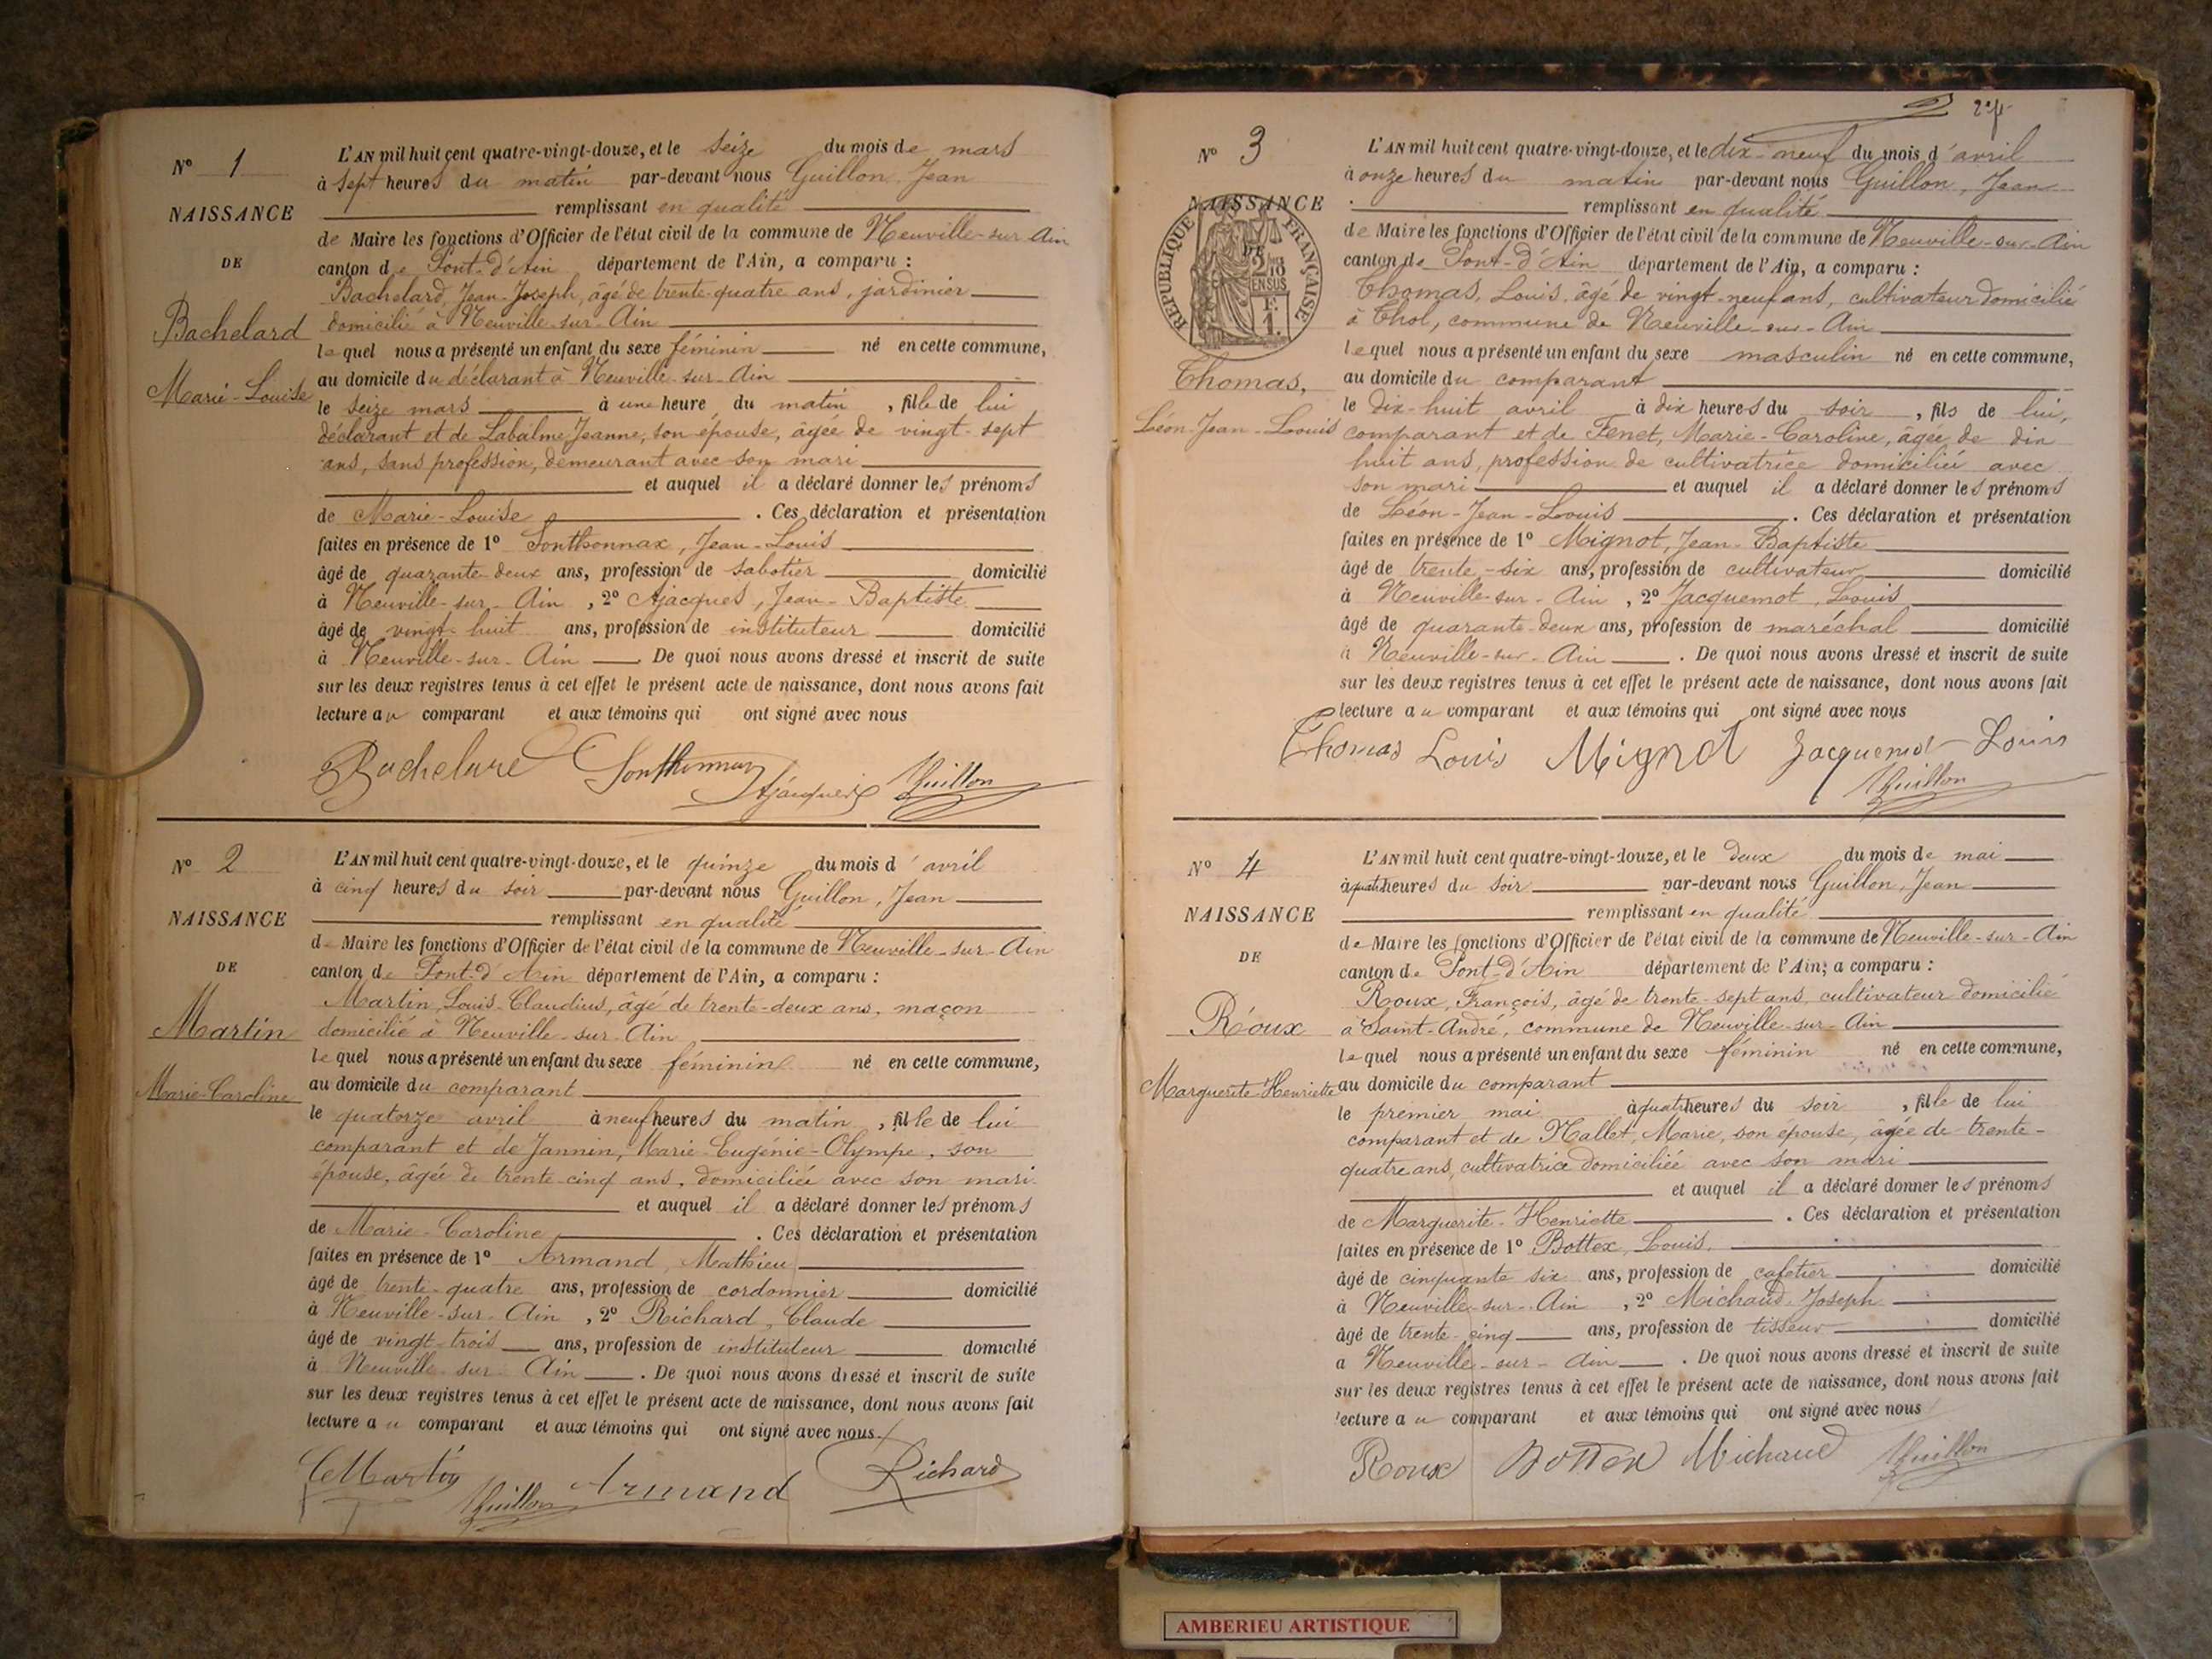 N° 1
NAISSANCE
DE
Bachelard
Marie-Louise
L'AN mil huit cent quatre-vingt-douze, et le seize du mois de mars
à sept heures du matin par-devant nous Guillon Jean
remplissant en qualité
de Maire les fonctions d'Officier de l'état civil de la commune de Neuville-sur-Ain
canton de Pont-d'Ain département de l'Ain, a comparu :
Bachelard, Jean-Joseph, âgé de trente-quatre ans, jardinier
domicilié à Neuville-sur-Ain
lequel nous a présenté un enfant du sexe féminin né en cette commune,
au domicile du déclarant à Neuville-sur-Ain
le seize mars à une heure du matin, fille de lui
déclarant et de Labalme Jeanne, son épouse, âgée de vingt-sept
ans, sans profession, demeurant avec son mari
et auquel il a déclaré donner les prénoms
de Marie-Louise. Ces déclaration et présentation
faites en présence de 1° Sonthonnax, Jean-Louis
âgé de quarante-deux ans, profession de sabotier domicilié
à Neuville-sur-Ain, 2° Ajacques, Jean-Baptiste
âgé de vingt-huit ans, profession de instituteur domicilié
à Neuville-sur-Ain. De quoi nous avons dressé et inscrit de suite
sur les deux registres tenus à cet effet le présent acte de naissance, dont nous avons fait
lecture au comparant et aux témoins qui ont signé avec nous
Bachelard Sonthonnax Ajacques Guillon
N° 2
NAISSANCE
DE
Martin
Marie-Caroline
L'AN mil huit cent quatre-vingt-douze, et le quinze du mois d'avril
à cinq heures du soir par-devant nous Guillon, Jean
remplissant en qualité
de Maire les fonctions d'Officier de l'état civil de la commune de Neuville-sur-Ain
canton de Pont-d'Ain département de l'Ain, a comparu :
Martin, Louis-Claudius, âgé de trente-deux ans, maçon
domicilié à Neuville-sur-Ain
lequel nous a présenté un enfant du sexe féminin né en cette commune,
au domicile du comparant
le quatorze avril à neuf heures du matin, fille de lui
comparant et de Jannin, Marie-Eugénie-Olympe, son
épouse, âgée de trente-cinq ans, domiciliée avec son mari
et auquel il a déclaré donner les prénoms
de Marie-Caroline. Ces déclaration et présentation
faites en présence de 1° Armand, Mathieu
âgé de trente-quatre ans, profession de cordonnier domicilié
à Neuville-sur-Ain, 2° Richard, Claude
âgé de vingt-trois ans, profession de instituteur domicilié
à Neuville-sur-Ain. De quoi nous avons dressé et inscrit de suite
sur les deux registres tenus à cet effet le présent acte de naissance, dont nous avons fait
lecture au comparant et aux témoins qui ont signé avec nous.
Martin Guillon Armand Richard
N° 3
NAISSANCE
DE
RÉPUBLIQUE FRANÇAISE
2/10 EN SUS
F. 1.
Thomas,
Léon-Jean-Louis
L'AN mil huit cent quatre-vingt-douze, et le dix-neuf du mois d'avril
à onze heures du matin par-devant nous Guillon, Jean
remplissant en qualité
de Maire les fonctions d'Officier de l'état civil de la commune de Neuville-sur-Ain
canton de Pont-d'Ain département de l'Ain, a comparu :
Thomas, Louis, âgé de vingt-neuf ans, cultivateur domicilié
à Thol, commune de Neuville-sur-Ain
lequel nous a présenté un enfant du sexe masculin né en cette commune,
au domicile du comparant
le dix-huit avril à dix heures du soir, fils de lui,
comparant et de Fenet, Marie-Caroline, âgée de dix
huit ans, profession de cultivatrice domiciliée avec
son mari et auquel il a déclaré donner les prénoms
de Léon-Jean-Louis. Ces déclaration et présentation
faites en présence de 1° Mignot, Jean-Baptiste
âgé de trente-six ans, profession de cultivateur domicilié
à Neuville-sur-Ain, 2° Jacquemot, Louis
âgé de quarante-deux ans, profession de maréchal domicilié
à Neuville-sur-Ain. De quoi nous avons dressé et inscrit de suite
sur les deux registres tenus à cet effet le présent acte de naissance, dont nous avons fait
lecture au comparant et aux témoins qui ont signé avec nous
Thomas Louis Mignot Jacquemot Louis
Guillon
N° 4
NAISSANCE
DE
Roux
Marguerite-Henriette
L'AN mil huit cent quatre-vingt-douze, et le deux du mois de mai
à quatre heures du soir par-devant nous Guillon, Jean
remplissant en qualité
de Maire les fonctions d'Officier de l'état civil de la commune de Neuville-sur-Ain
canton de Pont-d'Ain département de l'Ain, a comparu :
Roux, François, âgé de trente-sept ans, cultivateur domicilié
à Saint-André, commune de Neuville-sur-Ain
lequel nous a présenté un enfant du sexe féminin né en cette commune,
au domicile du comparant
le premier mai à quatre heures du soir, fille de lui
comparant et de Mallet, Marie, son épouse, âgée de trente-
quatre ans, cultivatrice domiciliée avec son mari
et auquel il a déclaré donner les prénoms
de Marguerite-Henriette. Ces déclaration et présentation
faites en présence de 1° Bottex, Louis,
âgé de cinquante six ans, profession de cafetier domicilié
à Neuville-sur-Ain, 2° Michaud, Joseph
âgé de trente-cinq ans, profession de tisseur domicilié
à Neuville-sur-Ain. De quoi nous avons dressé et inscrit de suite
sur les deux registres tenus à cet effet le présent acte de naissance, dont nous avons fait
lecture au comparant et aux témoins qui ont signé avec nous
Roux Bottex Michaud Guillon
AMBERIEU ARTISTIQUE